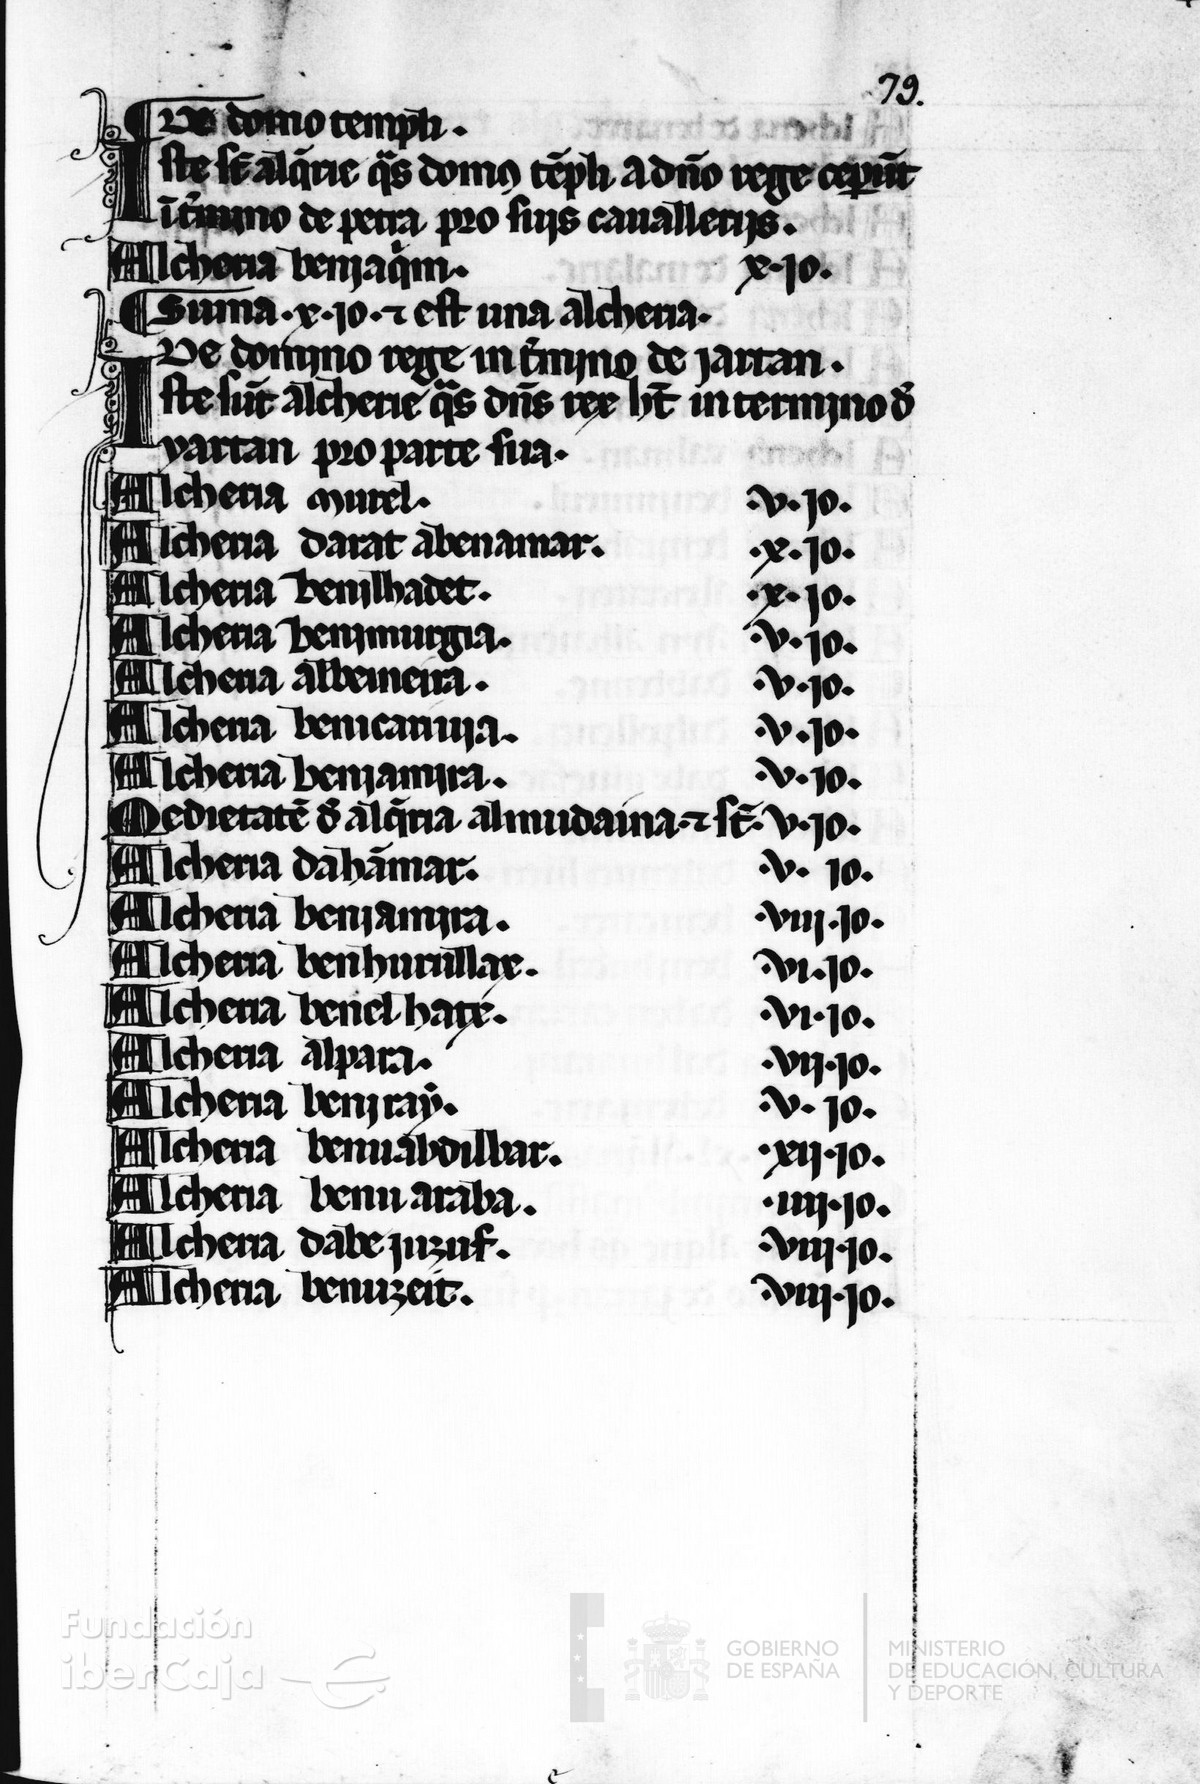 79.
De domo templi.
Iste st̄ alq̄rie q̄s domꝰ tēpli a dn̄o rege ceperūt
ī t̄mino de petra pro suis cavallerijs.
Alcheria beniaq̄m. x. jo.
Suma. x. jo. ⁊ est una alcheria.
De domino rege in t̄mino de jartan.
Iste sūt alcherie q̄s dn̄s rex ht̄ in termino d̄
yartan pro parte sua.
Alcheria murel. .v. jo.
Alcheria darat abenamar. .x. jo.
Alcheria benilhadet. .x. jo.
Alcheria benimurgia. .v. jo.
Alcheria albeneira. .v. jo.
Alcheria benicatnira. .v. jo.
Alcheria beniamira. .v. jo.
Medietatē d̄ alq̄ria almudaina. ⁊ st̄. v. jo.
Alcheria dahāmar. .v. jo.
Alcheria beniamira. .viii. jo.
Alcheria benhurullax. .vi. jo.
Alcheria benel hatx. .vi. jo.
Alcheria alpara. .vii. jo.
Alcheria beniray. .v. jo.
Alcheria benuabdilbar. .xii. jo.
Alcheria benu araba. .iiii. jo.
Alcheria dabe juzuf. .viii. jo.
Alcheria benuzeit. .viii. jo.
Fundación
iberCaja
GOBIERNO
DE ESPAÑA
MINISTERIO
DE EDUCACIÓN, CULTURA
Y DEPORTE